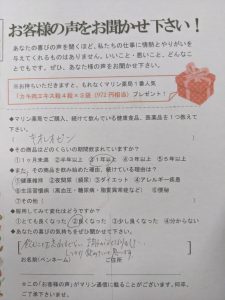 お客様の声をお聞かせ下さい!
あなたの喜びの声を聞くほど、私たちの仕事に情熱とやりがいを
与えてくれるものはありません。いいこと、悪いこと、どんなこ
とでもです。ぜひ、あなた様の声をお聞かせ下さい。
※お持ちいただきますと、もれなくマリン薬局1番人気
「カキ肉エキス粒4粒×9袋(972円相当)プレゼント!
◆マリン薬局でご購入、続けて飲んでいる健康食品、医薬品を1つ教えて
下さい。
◆その商品はどのくらいの期間飲まれていますか?
①1ヶ月未満 ②半年以上 ③1年以上 ④3年以上 ⑤5年以上
◆また、その商品を飲み始めた理由、継続している理由は?
①健康維持 ②夜間尿(頻尿) ③ダイエット ④アレルギー疾患
⑤生活習慣病(高血圧・糖尿病・脂質異常症など) ⑥便秘
⑦その他(
◆服用してみて変化はどうですか?
①とても良くなった ②良くなった ③少し良くなった ④分からない
◆あなたの喜びの気持ちをぜひお聞かせ下さい。
お名前(ペンネーム) ご住所
※この「お客様の声」がマリン通信に載ることがございます。何卒、
ご了承下さいませ。